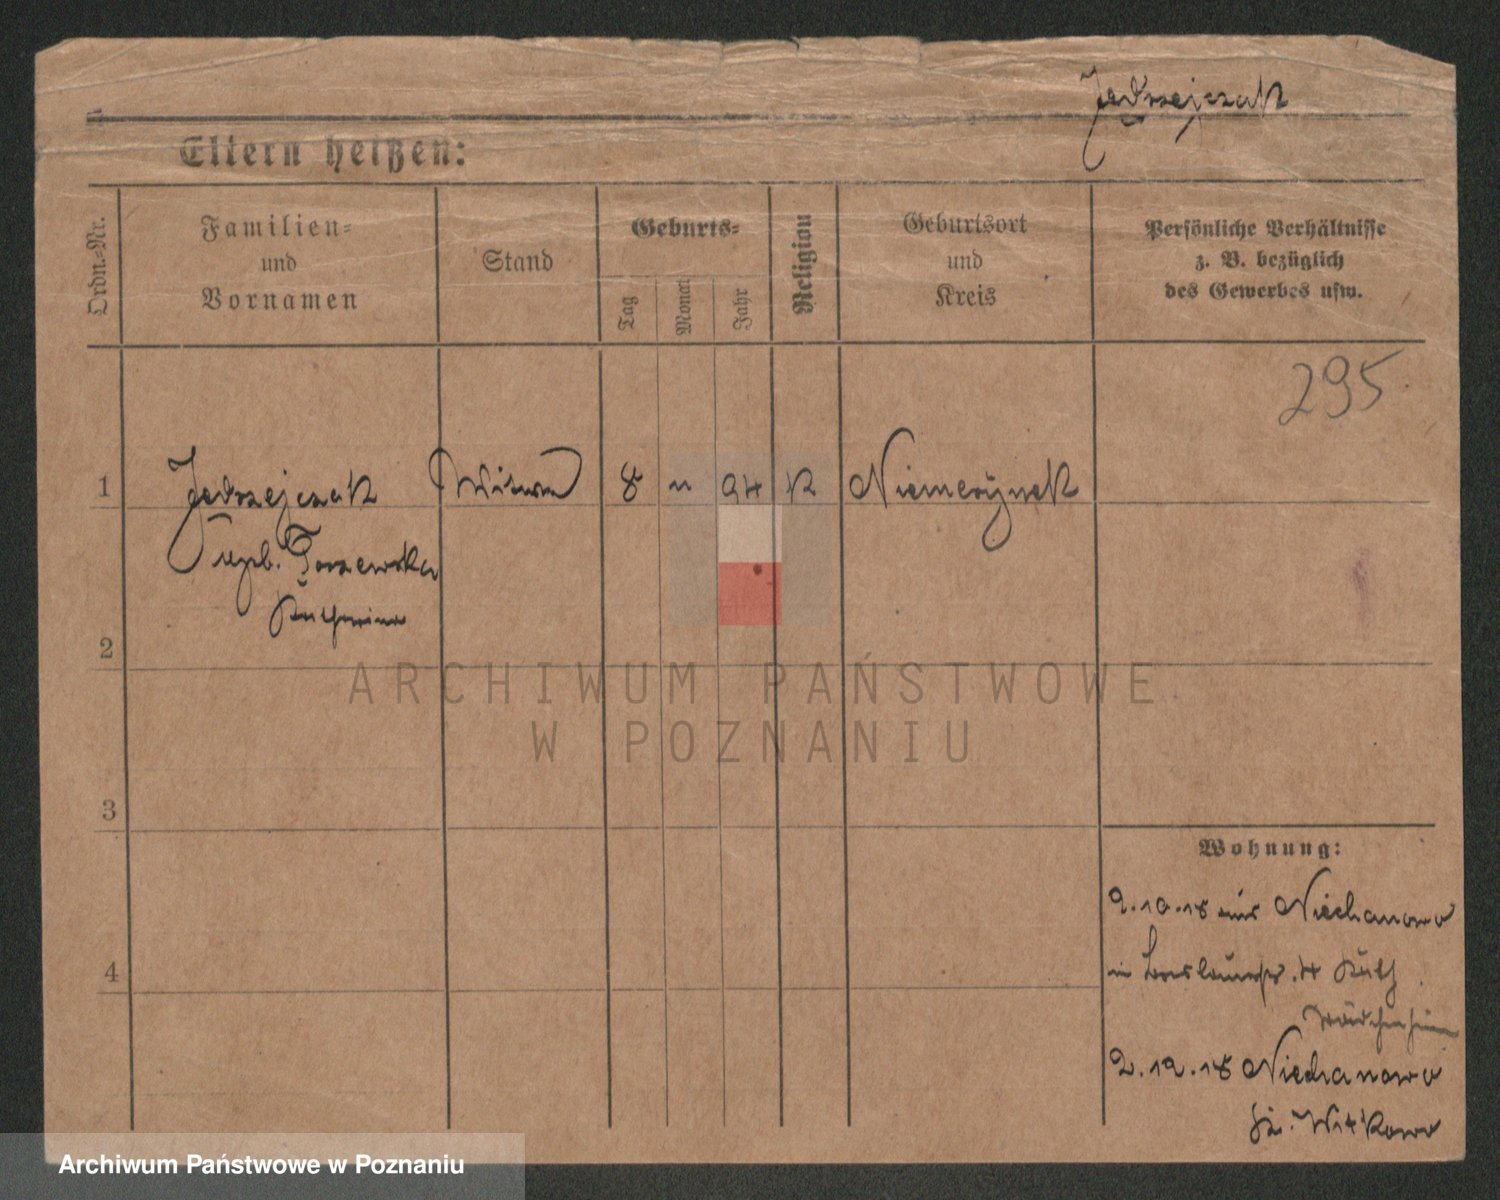 Jedrzejczak
Eltern heißen:
Ordn.-Nr.
Familien- und Vornamen
Stand
Geburts-
Tag
Monat
Jahr
Religion
Geburtsort und Kreis
Persönliche Verhältnisse
z. B. bezüglich
des Gewerbes usw.
295
1 Jedrzejczak Witwe 8 11 94 K
geb.
Katharina
2
3
4
Wohnung:
2.10.18 aus Niechanowo
in 4 Kath
Mädchenheim
2.12.18 Niechanowo
Kr. Witkowo
ARCHIWUM PAŃSTWOWE
W POZNANIU
Archiwum Państwowe w Poznaniu